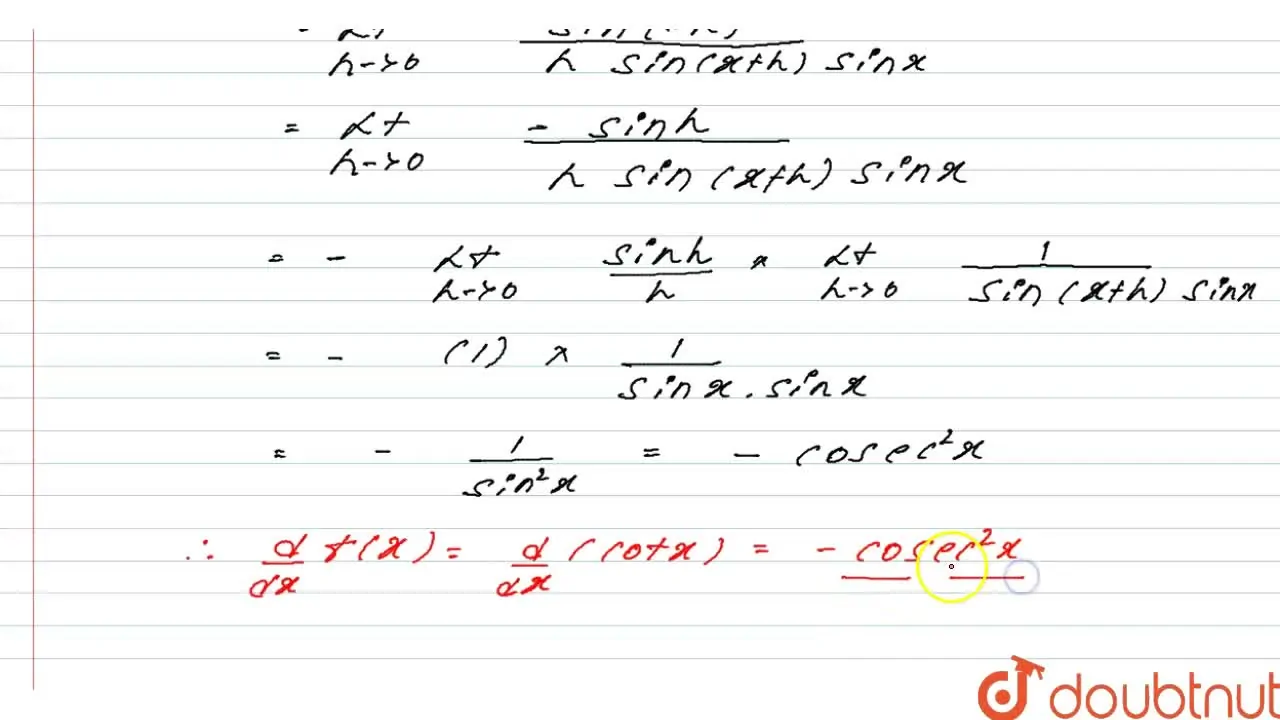 h->0 h sin(x+h) sinx
= Lt - sinh
h->0 h sin(x+h) sinx
= - Lt sinh/h × Lt 1
h->0 h->0 sin(x+h) sinx
= - (1) × 1
sinx . sinx
= - 1/sin²x = - cosec²x
∴ d/dx f(x) = d/dx (cotx) = - cosec²x
doubtnut